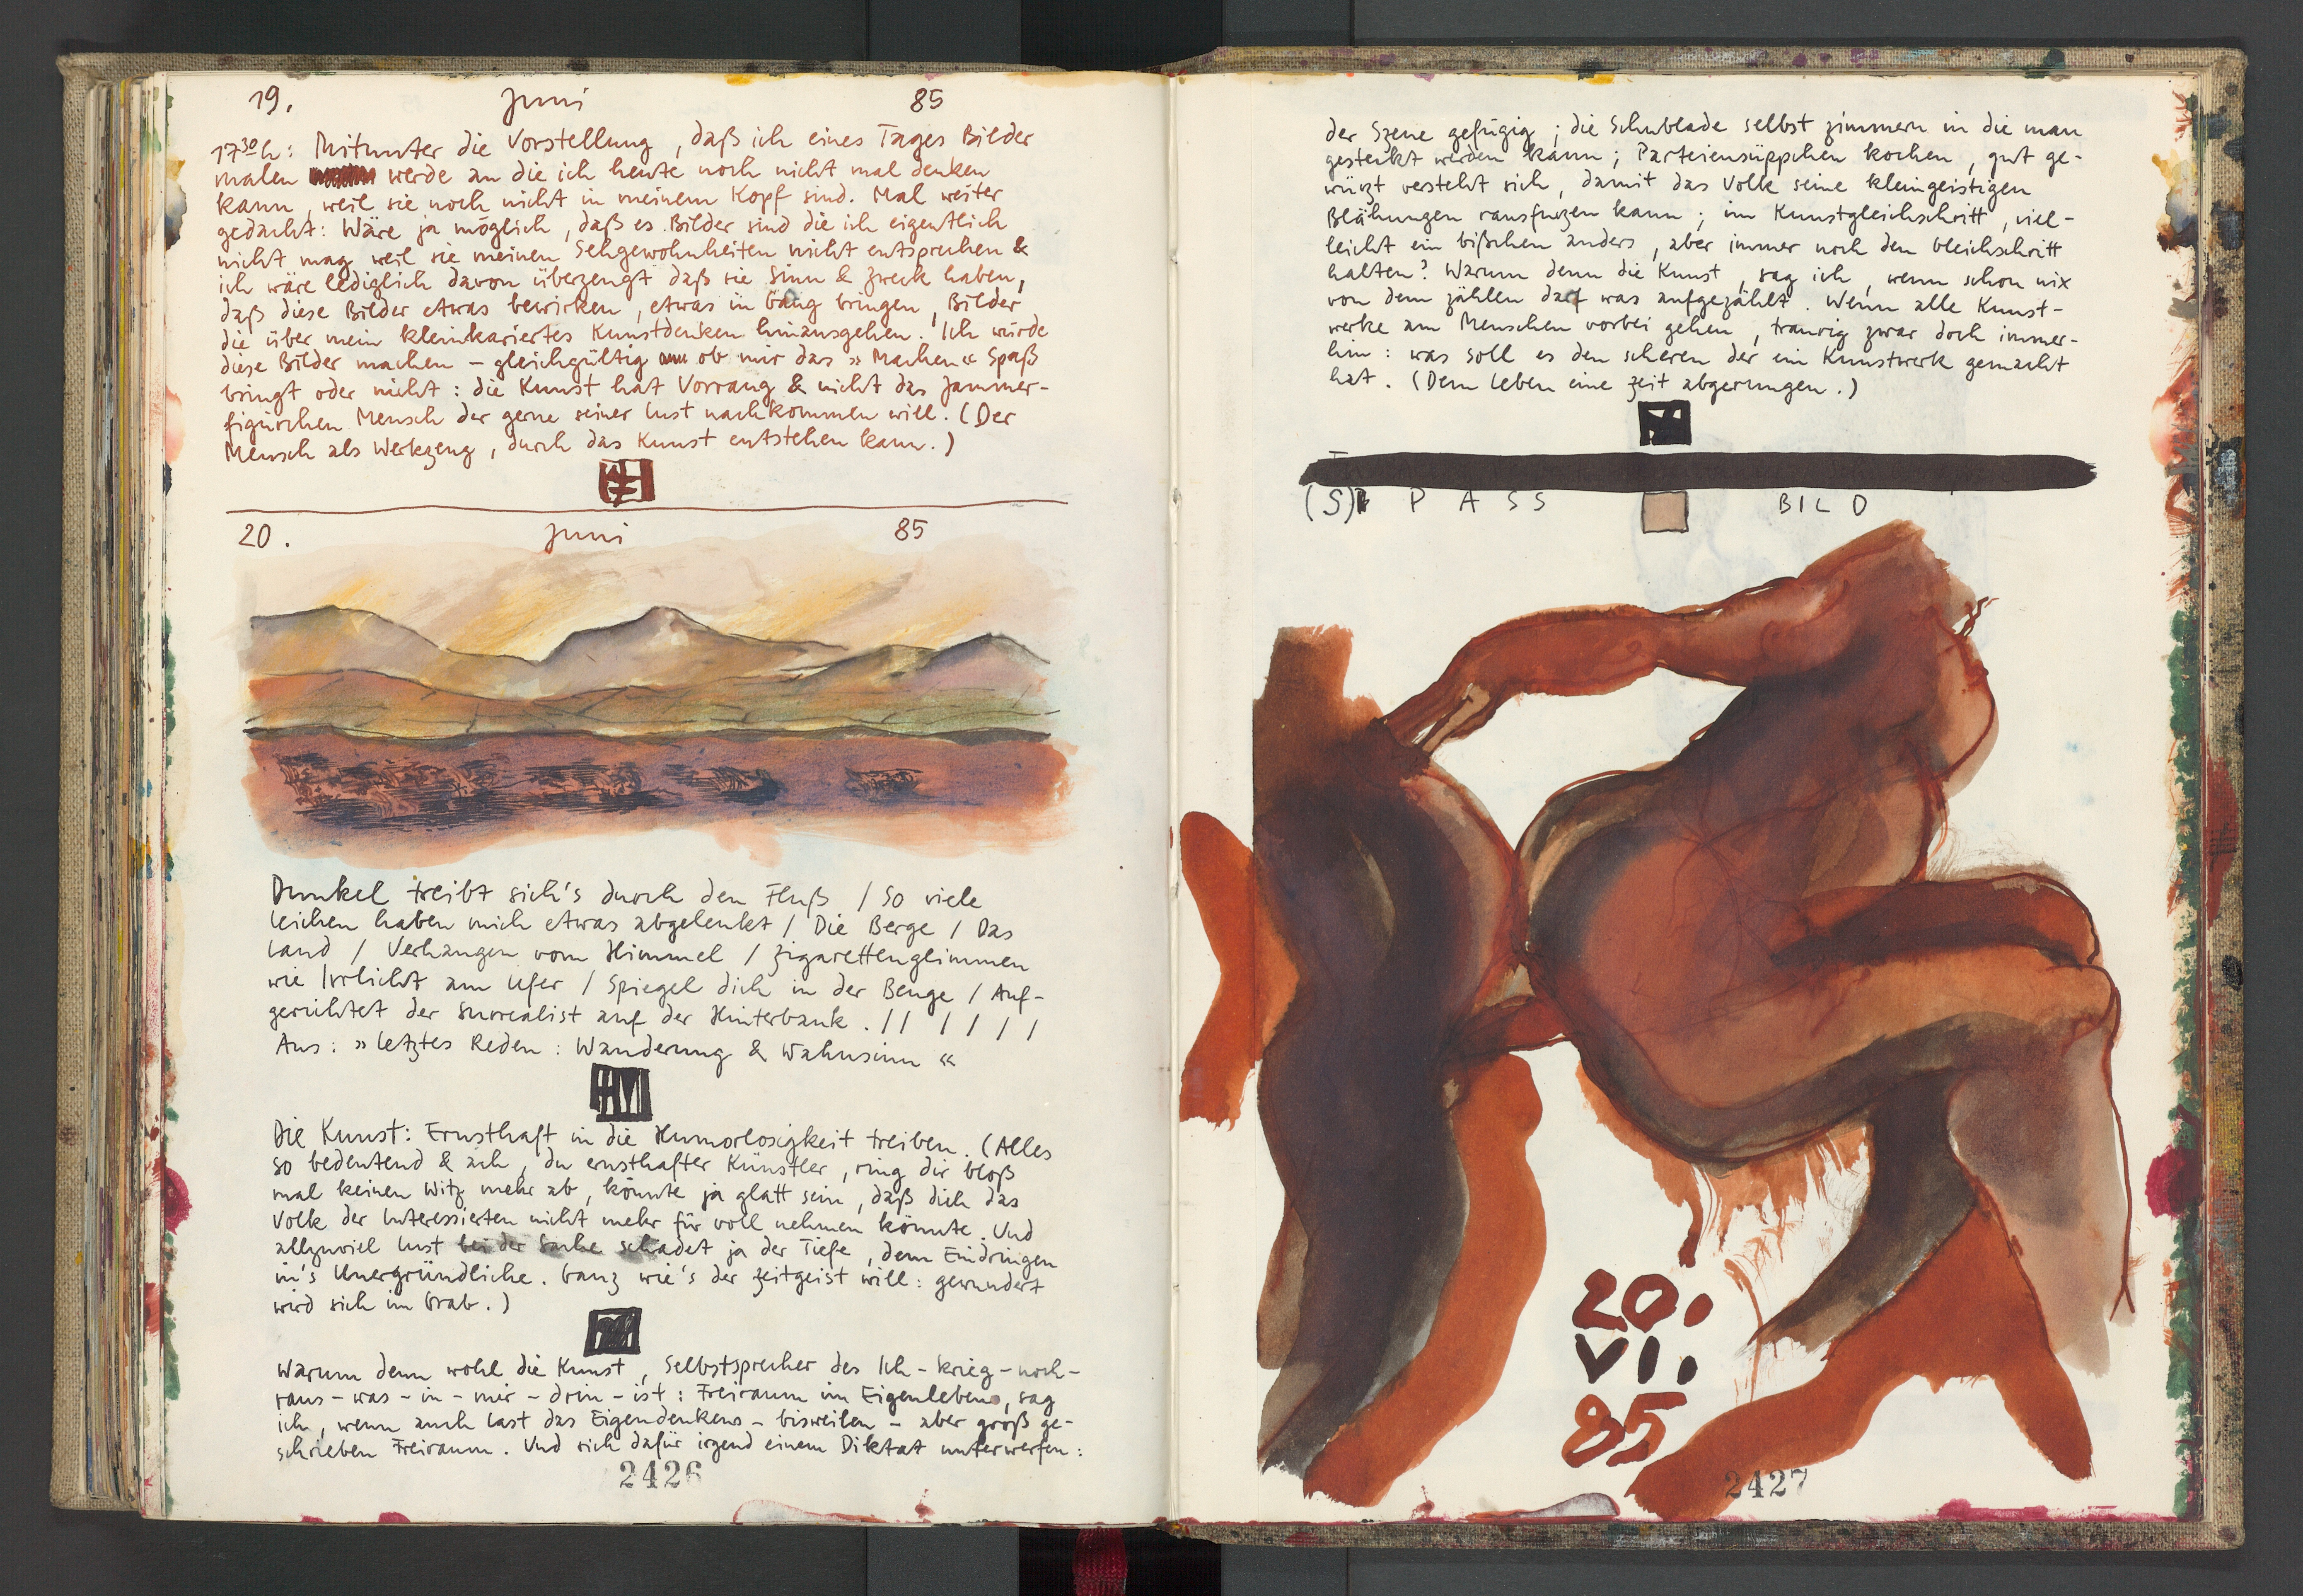 19. Juni 85
17³⁰h: Mitunter die Vorstellung, daß ich eines Tages Bilder
malen werde an die ich heute noch nicht mal denken
kann, weil sie noch nicht in meinem Kopf sind. Mal weiter
gedacht: Wäre ja möglich, daß es Bilder sind die ich eigentlich
nicht mag weil sie meinen Sehgewohnheiten nicht entsprechen &
ich wäre lediglich davon überzeugt daß sie Sinn & Zweck haben,
daß diese Bilder etwas bewirken, etwas in Gang bringen, Bilder
die über mein kleinkariertes Kunstdenken hinausgehen. Ich würde
diese Bilder machen – gleichgültig ob mir das »Machen« Spaß
bringt oder nicht: die Kunst hat Vorrang & nicht das Jammer-
figürchen Mensch der gerne seiner Lust nachkommen will. (Der
Mensch als Werkzeug, durch das Kunst entstehen kann.)
20. Juni 85
Dunkel treibt sich's durch den Fluß / So viele
Leichen haben mich etwas abgelenkt / Die Berge / Das
Land / Verhangen vom Himmel / Zigarettenglimmen
wie Irrlicht am Ufer / Spiegel dich in der Beuge / Auf-
gerichtet der Surrealist auf der Hinterbank. // / / / /
Aus: »Letztes Reden: Wanderung & Wahnsinn«
Die Kunst: Ernsthaft in die Humorlosigkeit treiben. (Alles
so bedeutend & ach, du ernsthafter Künstler, ring dir bloß
mal keinen Witz mehr ab, könnte ja glatt sein, daß dich das
Volk der Interessierten nicht mehr für voll nehmen könnte. Und
allzuviel Lust bei der Sache schadet ja der Tiefe, dem Eindringen
in's Unergründliche. Ganz wie's der Zeitgeist will: gewundert
wird sich im Grab.)
Warum denn wohl die Kunst, Selbstsprecher des Ich-krieg-noch-
raus-was-in-mir-drin-ist: Freiraum im Eigenleben, sag
ich, wenn auch Last das Eigendenkens – bisweilen – aber groß ge-
schrieben Freiraum. Und sich dafür irgend einem Diktat unterwerfen:
2426
der Szene gefügig; die Schublade selbst zimmern in die man
gesteckt werden kann; Parteiensüppchen kochen, gut ge-
würzt versteht sich, damit das Volk seine kleingeistigen
Blähungen rausfurzen kann; im Kunstgleichschritt, viel-
leicht ein bißchen anders, aber immer noch den Gleichschritt
halten? Warum denn die Kunst, sag ich, wenn schon nix
von dem zählen darf was aufgezählt. Wenn alle Kunst-
werke am Menschen vorbei gehen, traurig zwar doch immer-
hin: was soll es den scheren der ein Kunstwerk gemacht
hat. (Dem Leben eine Zeit abgerungen.)
(S) P A S S BILD
20.
VI.
85
2427